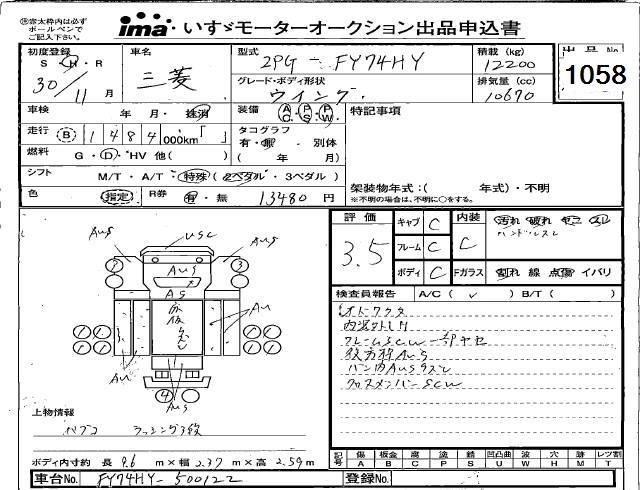 ㊟赤太枠内は必ず
ボールペンで
ご記入下さい。
ima いすゞモーターオークション出品申込書
初度登録 車名 型式 積載 (kg) 出品No.
S・H・R 三菱 2PG - FY74HY 12200 1058
30/11月 グレード・ボディ形状 排気量 (cc)
ウイング 10670
車検 年 月・抹消 装備 AC PS PW 特記事項
走行 B 1484 000km「 」 タコグラフ
有・無・別体
燃料 G・D・HV 他( ) ( 年 月)
シフト M/T・A/T・特殊(2ペダル・3ペダル)
架装物年式:( 年式)・不明
※不明の場合は、不明に○をする。
色 指定 R券 有・無 13480 円
評価 キャブ C 内装 汚れ 破れ
3.5 フレーム C C
ボディ C Fガラス 割れ 線 点傷 イバリ
検査員報告 A/C( ✓ ) B/T( )
内装外し月
フレームSCW一部ヤセ
後方枠AuS
クロスメンバーSCW
AuS USC AuS
2 AuS 3
AS
Au Au
4 AuS
上物情報
パブコ ラッシング3段
ボディ内寸約 長 9.6 m×幅 2.37 m×高 2.59m
記号 傷 板金 腐 塗 錆 凹凸曲 波 穴 跡 レツ割
A B C P S U W H M T
車台No. FY74HY-500122 登録No.